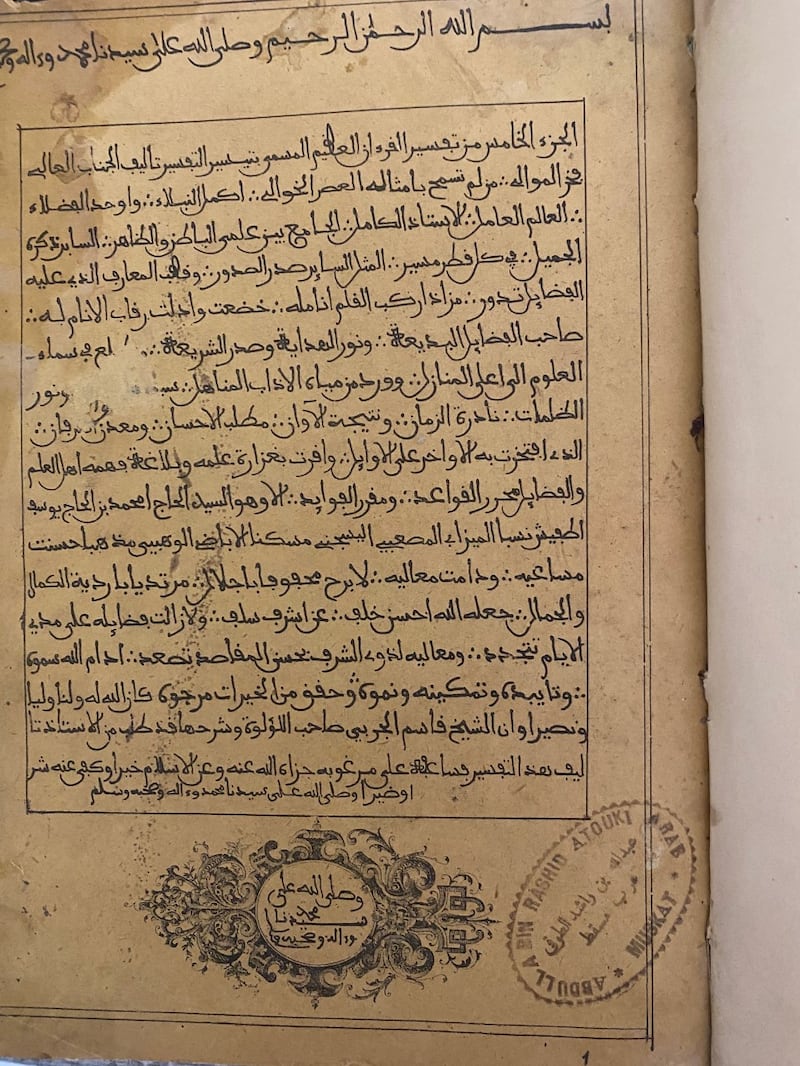 بسم الله الرحمن الرحيم وصلى الله على سيدنا محمد وءاله
الجزء الخامس من تفسير القرءان العظيم المسمى بتيسير التفسير تأليف الجناب العالي
فخر الموالي ∴ من لم تسمح بامثاله العصر الخوالي ∴ اكمل النبلاء ∴ واوحد الفضلاء
∴ العالم العامل ∴ الاستاذ الكامل ∴ الجامع بين علمي الباطن والظاهر ∴ الساير ذكره
الجميل ∴ في كل قطر مسير ∴ المثل الساير صدر الصدور ∴ وقطب المعارف الذي عليه
الفضايل تدور ∴ من اذا ركب القلم انامله ∴ خضعت واذلت رقاب الانام له ∴
صاحب الفضايل البديعة ∴ ونور الهداية وصدر الشريعة ∴ في سماء
العلوم الى اعلى المنازل ∴ وورد من مياه الاداب المناهل ∴ ونور
الظلمات ∴ نادرة الزمان ∴ ونتيجة الآوان ∴ مطلب الاحسان ∴ ومعدن
الذي افتخرت به الاواخر على الاوايل ∴ واقرت بغزارة علمه وبلاغة فهمه اهل العلم
والفضايل محرر القواعد ∴ ومقرر الفوايد ∴ الا وهو السيد الحاج امحمد بن الحاج يوسف
اطفيش نسبا الميزابي المصعبي اليسجني مسكنا الاباضي الوهبي مذهبا حسنت
مساعيه ∴ ودامت معاليه ∴ لا برح محفوفا باجلال ∴ مرتديا باردية الكمال
والجمال ∴ جعله الله احسن خلف ∴ عن اشرف سلف ∴ ولا زالت فضايله على مدى
الايام تتجدد ∴ ومعاليه لذوي الشرف بحسن المقاصد تصعد ∴ ادام الله سموه
∴ وتاييده وتمكينه ونموه وحقق من الخيرات مرجوه كان الله له ولنا وليا
ونصيرا وان الشيخ قاسم الجربي صاحب اللؤلؤة وشرحها قد طلب من الاستاذ تا
ليف هذا التفسير فساعده على مرغوبه جزاه الله عنه وعن الاسلام خيرا وكفى عنه شر
ا وضيرا وصلى الله على سيدنا محمد وءاله وصحبه وسلم
وصلى الله على
سيدنا محمد
وءاله وصحبه
ABDULLA BIN RASHID ATOUKI ARAB
* MUSKAT *
عبدالله بن راشد
عرب مسقط
1